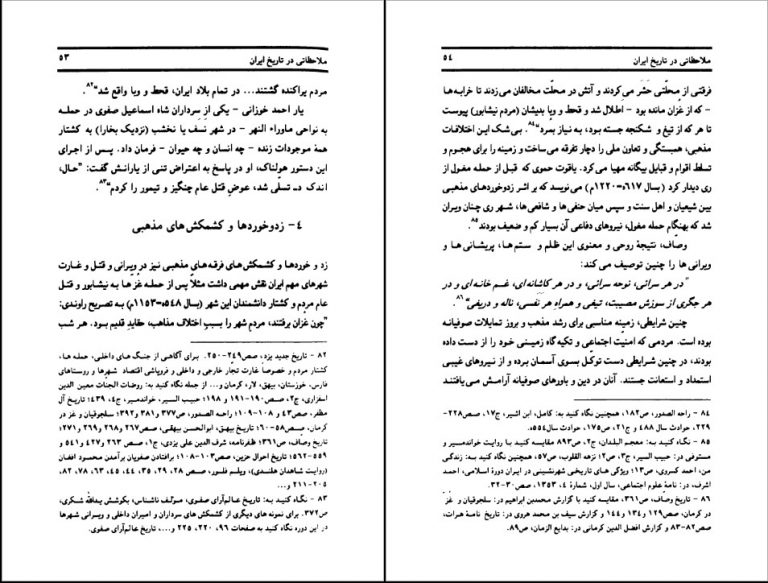 ملاحظاتی در تاریخ ایران ۵۳
مردم پراکنده گشتند... در تمام بلاد ایران، قحط و وبا واقع شد"۸۲.
یار احمد خوزانی - یکی از سرداران شاه اسماعیل صفوی در حمله
به نواحی ماوراء النهر - در شهر نسف یا نخشب (نزدیک بخارا) به کشتار
همهٔ موجودات زنده - چه انسان و چه حیوان - فرمان داد. پس از اجرای
این دستور هولناک، او در پاسخ به اعتراض تنی از یارانش گفت: "حال،
اندک دم تسلّی شد، عوضِ قتل عام چنگیز و تیمور را کردم"۸۳.
۴- زدوخوردها و کشمکش‌های مذهبی
زد و خوردها و کشمکش‌های فرقه‌های مذهبی نیز در ویرانی و قتل و غارت
شهرهای مهم ایران نقش مهمی داشت مثلاً پس از حملهٔ غزها به نیشابور و قتل
عام مردم و کشتار دانشمندان این شهر (بسال ۵۴۸ه‍=۱۱۵۳م) به تصریح راوندی:
"چون غزان برفتند، مردم شهر را بسببِ اختلاف مذاهب، حقایدِ قدیم بود. هر شب
۸۲ - تاریخ جدید یزد، صص۲۴۹-۲۵۰. برای آگاهی از جنگ‌های داخلی، حمله‌ها،
کشتار مردم و خصوصاً غارت تجار خارجی و داخلی و فروپاشی اقتصاد شهرها و روستاهای
فارس، خوزستان، بیهق، لار، کرمان و... از جمله نگاه کنید به: روضات الجنات معین الدین
اسفزاری، ج۲، صص۱۹۰-۱۹۱ و ۱۹۸؛ حبیب السیر، خواندمیر، ج۴، ۴۳۹؛ تاریخ آل
مظفر، صص۴۳ و ۱۰۸-۱۰۹؛ راحه الصدور، صص۳۷۷ و ۳۸۱ و ۳۹۲؛ سلجوقیان و غز در
کرمان، صص۵۸-۶۰؛ تاریخ بیهق، ابوالحسن بیهقی، صص۲۶۷ و ۲۶۸ و ۲۶۹ و ۲۷۱؛
تاریخ وصاف، ص۳۶۱؛ ظفرنامه، شرف الدین علی یزدی، ج۱، صص ۲۶۳ و ۴۲۷ و ۵۴۱ و
۵۵۹-۵۶۲؛ تاریخ احوال حزین، صص۱۰۳-۱۰۸؛ برافتادن صفویان برآمدن محمود افغان
(روایت شاهدان هلندی)، ویلم فلور، صص ۲۸، ۲۹، ۳۵، ۴۴، ۴۵، ۶۳، ۷۸، ۸۲،
۲۰۵-۲۱۱ و...
۸۳ - نگاه کنید به: تاریخ عالم‌آرای صفوی، مولّف ناشناس، بکوشش یدالله شکری،
ص۳۷۲. برای نمونه های دیگری از کشمکش های سرداران و امیران داخلی و ویرانی شهرها
در این دوره نگاه کنید به صفحات ۹۶، ۲۲۰، ۲۲۵ و...، تاریخ عالم‌آرای صفوی.
ملاحظاتی در تاریخ ایران ۵۴
فرقتی از محلّتی حَشَر می‌کردند و آتش در محلّت مخالفان می‌زدند تا خرابه‌ها
- که از غزان مانده بود - اطلال شد و قحط و وبا بدیشان (مردم نیشابور) پیوست
تا هر که از تیغ و شکنجه جسته بود، به نیاز بمرد"۸۴. بی‌شک این اختلافات
مذهبی، همبستگی و تعاون ملی را دچار تفرقه می‌ساخت و زمینه را برای هجوم و
تسلط اقوام و قبایل بیگانه مهیا می‌کرد. یاقوت حموی که قبل از حمله مغول از
ری دیدار کرد (بسال ۶۱۷ه‍=۱۲۲۰م) می‌نویسد که بر اثر زدوخوردهای مذهبی
بین شیعیان و اهل سنت و سپس میان حنفی‌ها و شافعی‌ها، شهر ری چنان ویران
شد که بهنگام حمله مغول، نیروهای دفاعی آن بسیار کم و ضعیف بودند۸۵.
وصاف، نتیجهٔ روحی و معنوی این ظلم و ستم‌ها، پریشانی‌ها و
ویرانی‌ها را چنین توصیف می‌کند:
"در هر سرائی، نوحه سرائی، و در هر کاشانه‌ای، غم خانه‌ای و در
هر جگری از سوزش مصیبت، تیغی و همراهِ هر نَفَسی، ناله و دریغی"۸۶.
چنین شرایطی، زمینه مناسبی برای رشد مذهب و بروز تمایلات صوفیانه
بوده است. مردمی که امنیّت اجتماعی و تکیه گاه زمینی خود را از دست داده
بودند، در چنین شرایطی دست توکل بسوی آسمان برده و از نیروهای غیبی
استمداد و استعانت جستند. آنان در دین و باورهای صوفیانه آرامش می‌یافتند
۸۴ - راحه الصدور، ص۱۸۲، همچنین نگاه کنید به: کامل، ابن اثیر، ج۱۷، صص۲۲۸-
۲۲۹، حوادث سال ۴۸۸ و ج۲۱، ص۱۷۵، حوادث سال۵۵۴ه‍.
۸۵ - نگاه کنید به: معجم البلدان، ج۲، ص۸۹۳ مقایسه کنید با روایت خواندمیر و
مستوفی در: حبیب السیر، ج۳، ص۲؛ نزهه القلوب، ص۵۷، همچنین نگاه کنید به مقاله
من، احمد کسروی، ص۱۳؛ ویژگی های تاریخی شهرنشینی در ایران دورهٔ اسلامی، احمد
اشرف، در: نامهٔ علوم اجتماعی، سال اول، شمارهٔ ۴، ۱۳۵۳، صص۳۰-۳۲.
۸۶ - تاریخ وصاف، ص۳۶۱، مقایسه کنید با گزارش محمدبن ابراهیم در: سلجوقیان و غز
در کرمان، صص۱۲۹ و ۱۳۴ و ۱۴۴ و گزارش سیف بن محمد هروی در: تاریخ نامهٔ هرات،
صص۸۲-۸۳ و گزارش افضل الدین کرمانی در: بدایع الزمان، ص۸۹.